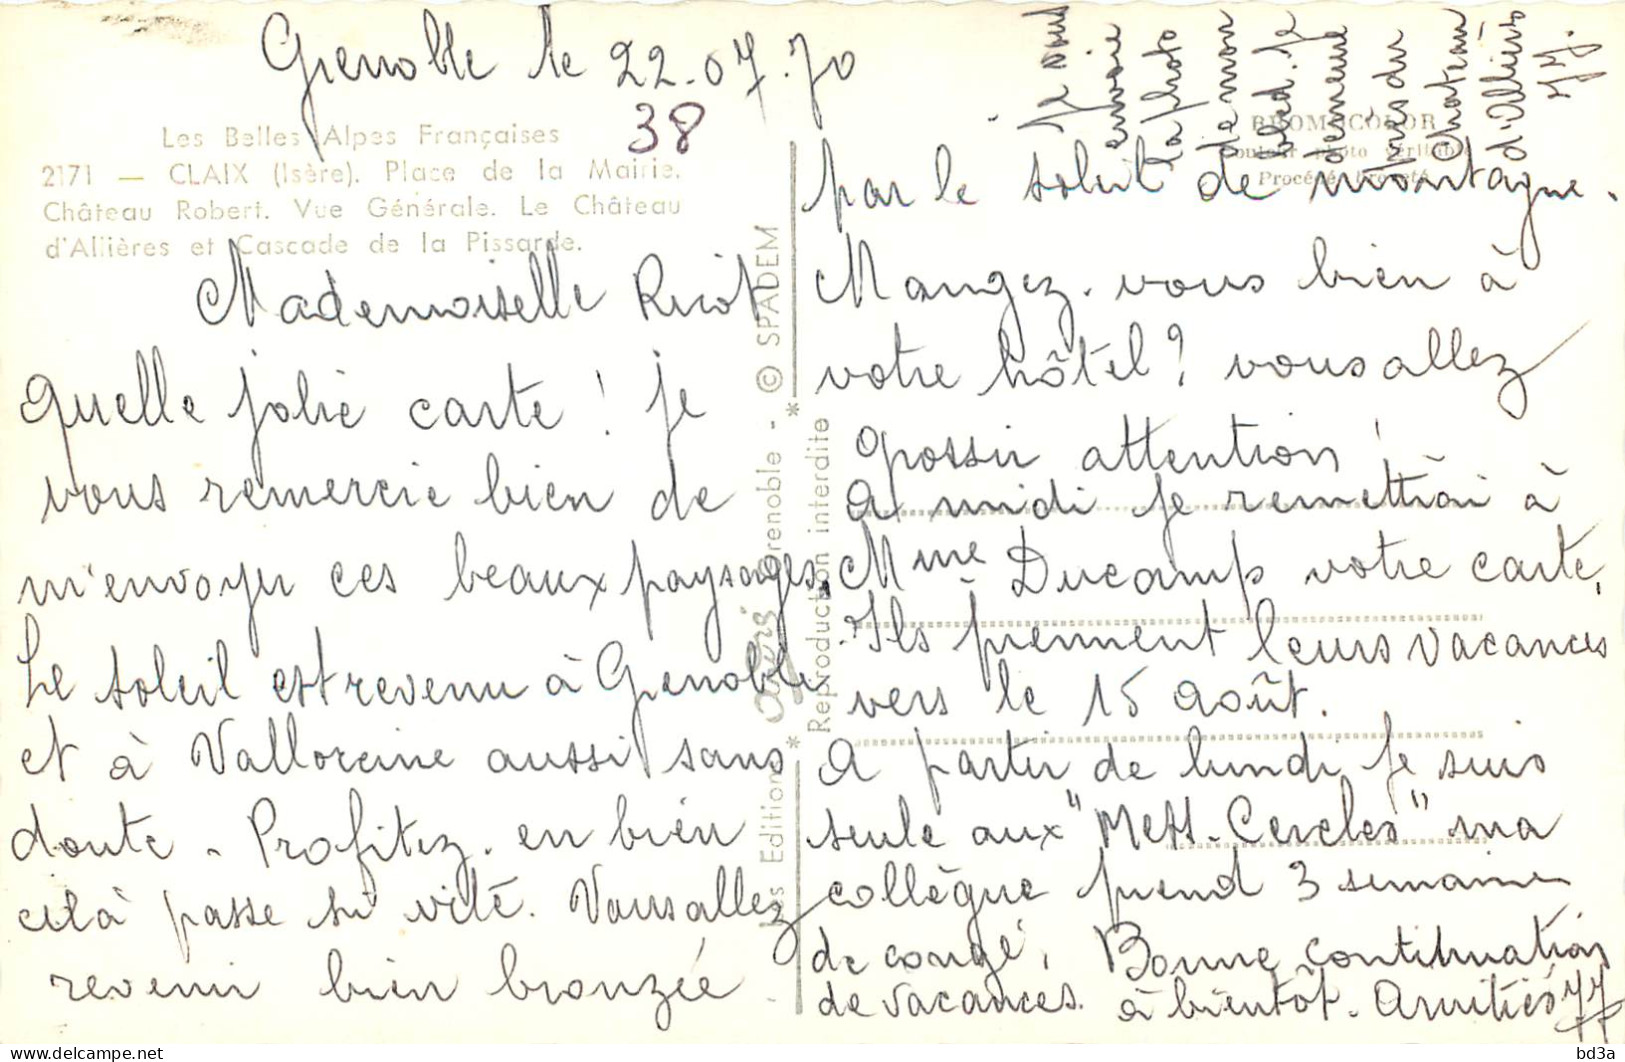 Grenoble le 22.07.70
38
Les Belles Alpes Françaises
2171 — CLAIX (Isère). Place de la Mairie.
Château Robert. Vue Générale. Le Château
d'Allières et Cascade de la Pissarde.
Mademoiselle Ricot
Quelle jolie carte ! je
vous remercie bien de
m'envoyer ces beaux paysages.
Le soleil est revenu à Grenoble
et à Vallorcine aussi sans
doute. Profitez-en bien
celà passe si vite. Vous allez
revenir bien bronzée
par le soleil de montagne.
Mangez-vous bien à
votre hôtel ? vous allez
grossir attention !
A midi je remettrai à
Mme Ducamp votre carte.
Ils prennent leurs vacances
vers le 15 août.
A partir de lundi je suis
seule aux "Mess-Cercles" ma
collègue prend 3 semaines
de congé. Bonne continuation
de vacances. à bientôt. Amitiés JJ
Je vous
envoie
la photo
de mon
bled. Je
demeure
près du
château
d'Allières
JJ.
BROMOCOLOR
Couleur photo véritable
Procédé breveté
Les Editions * André * Grenoble - © SPADEM
Reproduction interdite
bd3a